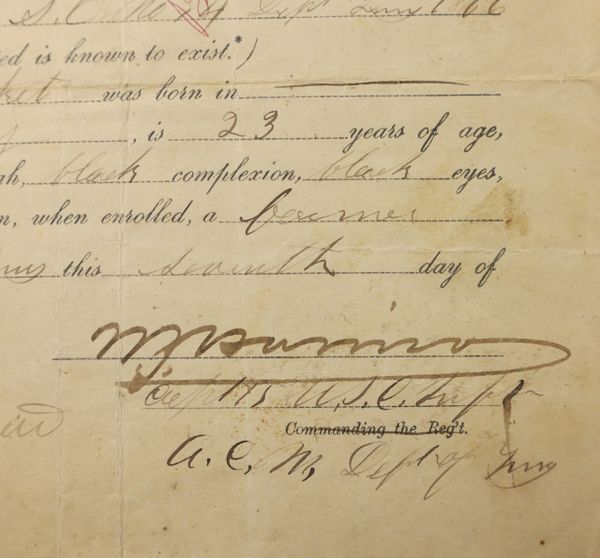 S. O. No 34 Dept Tenn 1866
ed is known to exist.*)
ket was born in
, is 23 years of age,
gh, black complexion, black eyes,
n, when enrolled, a farmer
this seventh day of
Capt 15 U.S.C. Inf
Commanding the Reg't.
A. C. M, Dept of Tenn